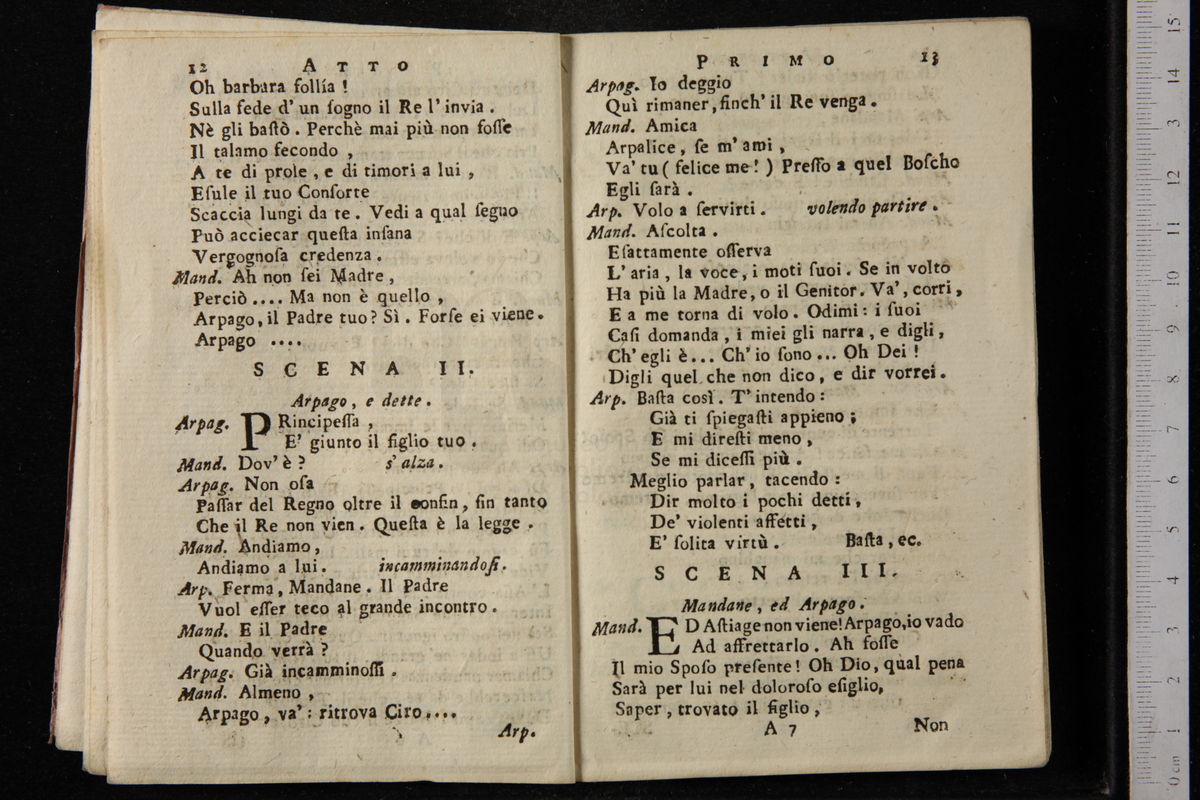 12 ATTO
Oh barbara follía !
Sulla fede d' un ſogno il Re l' invia .
Nè gli baſtò . Perchè mai più non foſſe
Il talamo fecondo ,
A te di prole , e di timori a lui ,
Eſule il tuo Conſorte
Scaccia lungi da te . Vedi a qual ſegno
Può acciecar queſta inſana
Vergognoſa credenza .
Mand. Ah non ſei Madre ,
Perciò .... Ma non è quello ,
Arpago, il Padre tuo? Sì . Forſe ei viene .
Arpago ....
SCENA II.
Arpago , e dette .
Arpag. PRincipeſſa ,
E' giunto il figlio tuo .
Mand. Dov' è ? s' alza .
Arpag. Non oſa
Paſſar del Regno oltre il confin, ſin tanto
Che il Re non vien . Queſta è la legge .
Mand. Andiamo,
Andiamo a lui . incamminandoſi .
Arp. Ferma, Mandane . Il Padre
Vuol eſſer teco al grande incontro .
Mand. E il Padre
Quando verrà ?
Arpag. Già incamminoſſi .
Mand. Almeno ,
Arpago, va' : ritrova Ciro ....
Arp.
PRIMO 13
Arpag. Io deggio
Quì rimaner, finch' il Re venga .
Mand. Amica
Arpalice, ſe m' ami ,
Va' tu ( felice me ! ) Preſſo a quel Boſcho
Egli ſarà .
Arp. Volo a ſervirti . volendo partire .
Mand. Aſcolta .
Eſattamente oſſerva
L' aria , la voce, i moti ſuoi . Se in volto
Ha più la Madre, o il Genitor. Va', corri ,
E a me torna di volo . Odimi : i ſuoi
Caſi domanda , i miei gli narra , e digli ,
Ch' egli è ... Ch' io ſono ... Oh Dei !
Digli quel che non dico , e dir vorrei .
Arp. Baſta così . T' intendo :
Già ti ſpiegaſti appieno ;
E mi direſti meno ,
Se mi diceſſi più .
Meglio parlar , tacendo :
Dir molto i pochi detti ,
De' violenti affetti ,
E' ſolita virtù . Baſta , ec.
SCENA III.
Mandane , ed Arpago .
Mand. ED Aſtiage non viene! Arpago, io vado
Ad affrettarlo . Ah foſſe
Il mio Spoſo preſente ! Oh Dio, qual pena
Sarà per lui nel doloroſo eſiglio,
Saper , trovato il figlio ,
A 7 Non